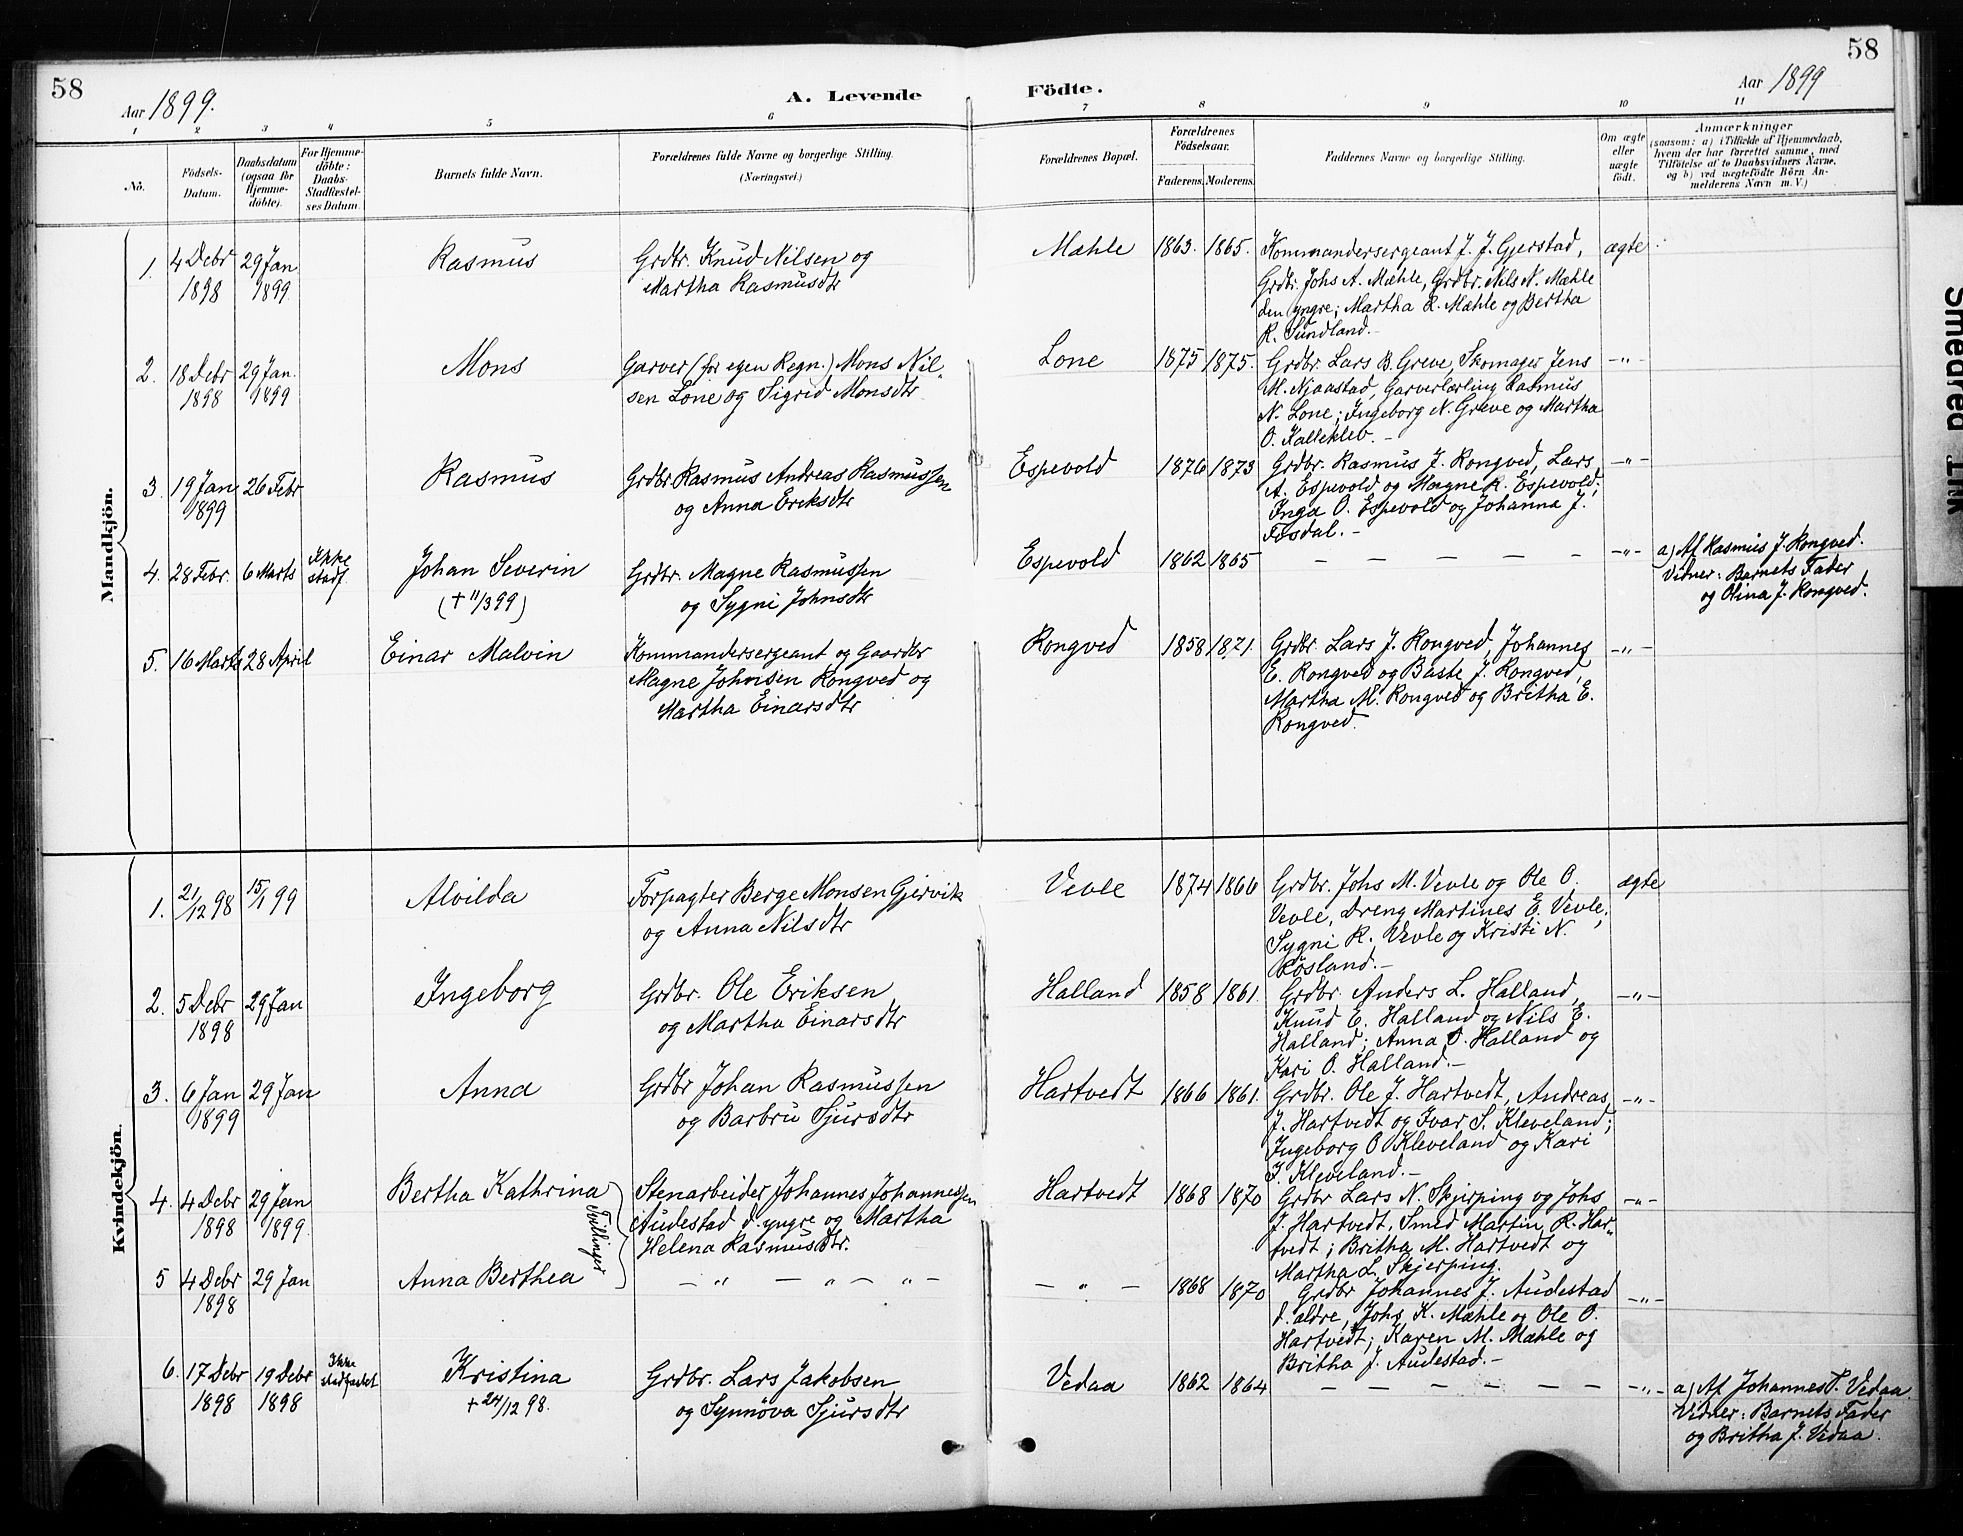 58
58
Aar 1899.
A. Levende Födte.
Aar 1899
1 2 3 4 5 6 7 8 9 10 11
No.
Födsels-Datum.
Daabsdatum (ogsaa för Hjemme-döbte).
For Hjemme-döbte: Daabs-Stadfæstel-ses Datum.
Barnets fulde Navn.
Forældrenes fulde Navne og borgerlige Stilling.
(Næringsvei.)
Forældrenes Bopæl.
Forældrenes Födselsaar.
Faderens. Moderens.
Faddernes Navne og borgerlige Stilling.
Om ægte eller uægte födt.
Anmærkninger
(saasom: a) i Tilfælde af Hjemmedaab, hvem der har forrettet samme, med Tilföielse af to Daabsvidners Navne. og b) ved uægtefödte Börn An-melderens Navn m. V.)
Mandkjön.
1. 4 Debr 1898 29 Jan 1899 Rasmus
Grdbr. Knud Nilsen og
Martha Rasmusdtr
Mæhle 1863. 1865.
Kommandersergeant J. J. Gjerstad,
Grdbr. Johs A. Mæhle, Grdbr. Nils N. Mæhle
den yngre; Martha R. Mæhle og Bertha
R. Sundland. –
ægte
2. 18 Debr 1898 29 Jan. 1899 Mons
Garver (for egen Regn.) Mons Nil-
sen Lone og Sigrid Monsdtr
Lone 1875 1875.
Grdbr. Lars B. Greve, Skomager Jens
M. Njaastad, Garverlærling Rasmus
N. Lone; Ingeborg N. Greve og Martha
O. Kalleklev. –
–"–
3. 19 Jan 1899 26 Febr Rasmus
Grdbr Rasmus Andreas Rasmussen
og Anna Eriksdtr
Espevold 1876 1873
Grdbr. Rasmus J. Rongved, Lars
A. Espevold og Magne R. Espevold;
Inga O. Espevold og Johanna J.
Fosdal. –
–"–
4. 28 Febr. 6 Marts Ikke stadf. Johan Severin
(+ 11/3 99)
Grdbr. Magne Rasmussen
og Sygni Johnsdtr
Espevold 1862 1865
– – – – –
–"–
a) Af Rasmus J. Rongved.
Vidner: Barnets Fader
og Olina J. Rongved.
5. 16 Marts 28 April Einar Malvin
Kommandersergeant og Gaardbr
Magne Johnsen Rongved og
Martha Einarsdtr
Rongved 1858 1871.
Grdbr. Lars J. Rongved, Johannes
E. Rongved og Baste J. Rongved,
Martha M. Rongved og Britha E.
Rongved.
–"–
Kvindekjön.
1. 21/12 98 15/1 99 Alvilda
Forpagter Berge Monsen Gjervik
og Anna Nilsdtr
Vevle 1874 1866
Grdbr. Johs M. Vevle og Ole O.
Vevle, Dreng Martines E. Vevle;
Sygni R. Vevle og Kristi N.
Røsland. –
ægte
2. 5 Debr 1898 29 Jan Ingeborg
Grdbr. Ole Eriksen
og Martha Einarsdtr
Halland 1858 1861.
Grdbr. Anders L. Halland,
Knud E. Halland og Nils E.
Halland; Anna O. Halland og
Kari O. Halland. –
–"–
3. 6 Jan 1899 29 Jan Anna
Grdbr Johan Rasmussen
og Barbru Sjursdtr
Hartvedt 1866 1861.
Grdbr. Ole J. Hartvedt, Andreas
J. Hartvedt og Ivar S. Kleveland;
Ingeborg O Kleveland og Kari
I. Kleveland. –
–"–
4. 4 Debr 1898 29 Jan 1899 Bertha Kathrina
Tvillinger
Stenarbeider Johannes Johannessen
Audestad d. yngre og Martha
Helena Rasmusdtr.
Hartvedt 1868 1870
Grdbr Lars N. Skjerping og Johs
J. Hartvedt, Smed Martin R. Har-
tvedt; Britha M. Hartvedt og
Martha L. Skjerping.
–"–
5 4 Debr 1898 29 Jan Anna Berthea
– " – " – " –
– " – 1868 1870
Grdbr Johannes J. Audestad
d. ældre, Johs K. Mæhle og Ole O.
Hartvedt; Karen M. Mæhle og
Britha J. Audestad. –
–"–
6. 17 Debr 1898 19 Debr 1898 Ikke stadfæstet Kristina
+ 24/12 98.
Grdbr. Lars Jakobsen
og Synnöva Sjursdtr
Vedaa 1862 1864
– – – – – –
–"–
a) Af Johannes T. Vedaa
Vidner: Barnets Fader
og Britha J. Vedaa.